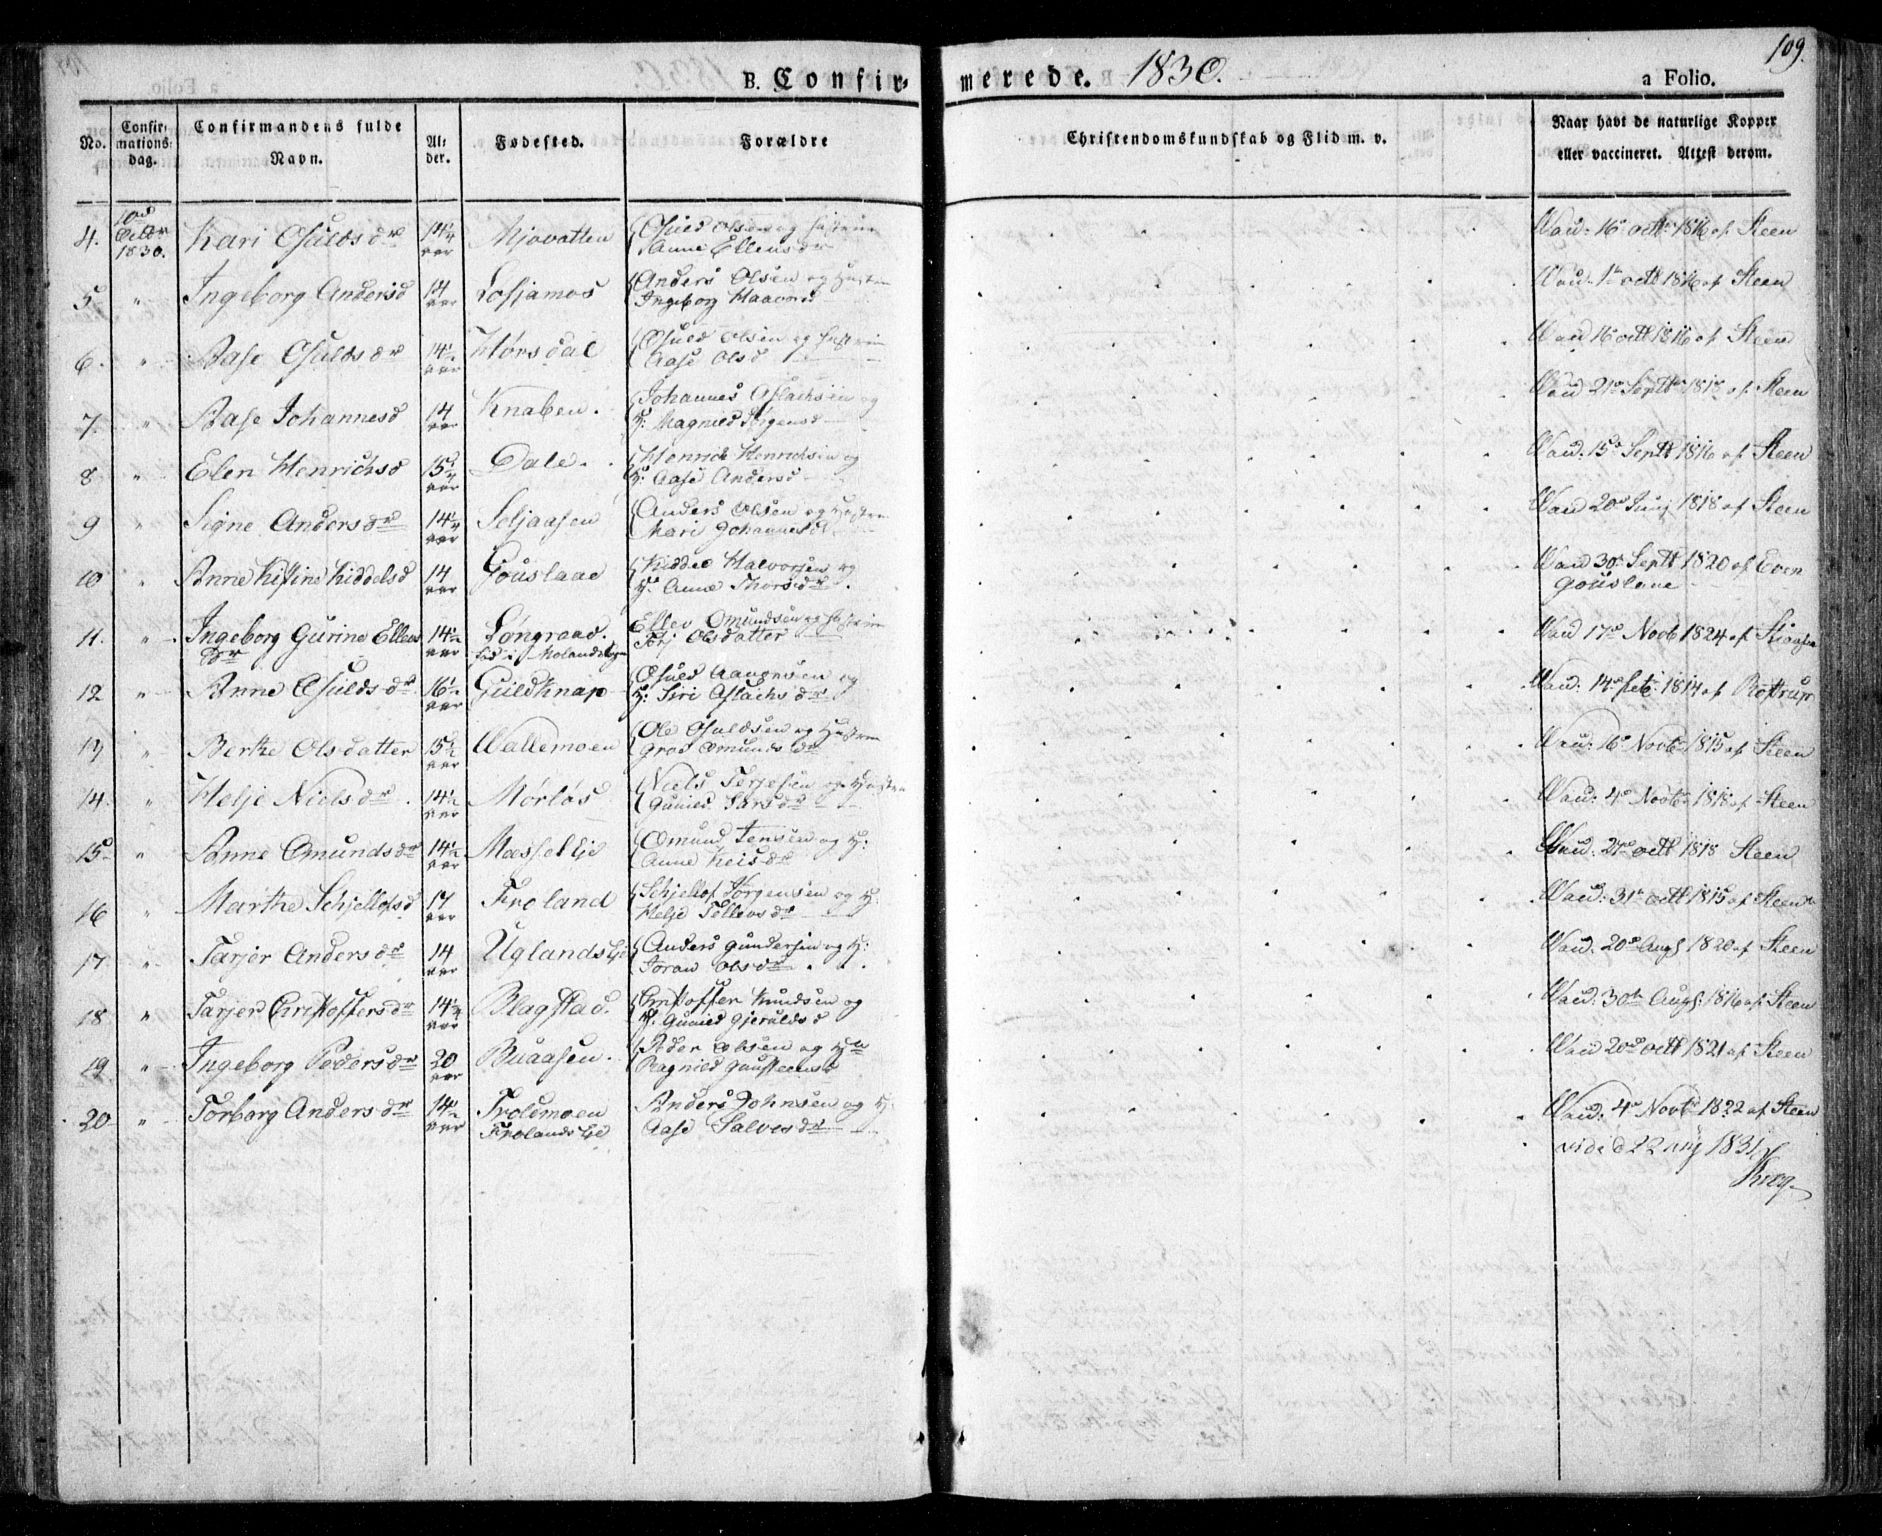 109.
B. Confir- merede. 1830. a Folio.
No. Confir-mations-dag. Confirmandens fulde Navn. Al-der. Fødested. Forældre Christendomskundskab og Flid m. v. Naar havt de naturlige Kopper eller vaccineret. Attest derom.
4. 1830. Kari Osulds dr 14 1/4 aar Mjovatten Osuld Olsen og Hustrue Anne Ellens dr Vaid: 16 octb 1816 af Steen
5 " Ingeborg Andersd 14 aar Anders Olsen og Hustru Ingeborg Haavors Vaid: 1 octb 1816 af Steen
6. " Aase Osulds dr 14 1/2 aar Hørsdal Osuld Olsen og Hustrue Aase Ols d Vaid 16 octb 1816 af Steen
7. " Aase Johannesd 14 aar Knaben. Johannes Aslachsen og H: Magnild Jørgensd Vaid 21 Septbr 1818 af Steen
8 " Elen Henrichsd 15 3/4 aar Dale. Henrich Henrichsen og H: Aase Andersd Vaid: 15 Septb 1816 af Steen
9 " Signe Anders dr 14 1/4 aar Seljaasen Anders Olsen og Hustrue Mari Johannesd Vaid 20 Junj 1818 af Steen
10 " Anne Kistine Kiddelsd 14 aar Gouslaae Kiddel Halvorsen og H. Anne Thorsdr. Vaid 30 Septb 1820 af Even Gouslaae
11. " Ingeborg Gurine Ellens dr 14 1/2 aar Løngraad. Ellev Omundsen og Hustrue Olsdatter Vaid 17 Novb 1824 af
12 " Anne Osulds dr 16 1/2 aar Guldknap Osuld Aanonsen og H: Siri Aslachs dr Vaid: 14 feb: 1814 af Rostrup
13 " Berthe Olsdatter 15 1/2 aar Wallemoen Ole Osuldsen og Hustrue Groe Omunds dr Vaid: 16 Novb 1815 af Steen
14. " Helje Niels dr. 14 1/2 aar Mørløs Niels Terjesen og Hustru Guned Lars dr Vaid: 4 Novb 1818 af Steen
15 " Anne Omunds dr 14 1/2 aar Messel Eje Omund Jensen og H: Anne Leis dr Vaid: 21 octb 1818 Steen
16 " Marthe Schjellofsd 17 aar Froland Schjellof Jørgensen og H. Helje Tellevs dr Vaid: 31 octb 1815 af Steen
17 " Tarjer Anders dr 14 aar Uglands Eje Anders Gundersen og H: Joran Olsdr Vaid: 20 Augs 1820 af Steen
18 " Tarjer Christoffers dr 14 1/4 aar Blagstad. Christoffer Knudsen og H. Guned Gjeruldsd Vaid: 30 Augs: 1816 af Steen
19. " Ingeborg Peders dr 20 aar Buaasen. Peder Olsen og Hu Ragnild Gunsteensd Vaid 20 octb 1821 af Steen
20 " Torborg Anders dr 14 1/2 aar Troldmoen Frolands Eje Anders Johnsen og H. Aase Salves dr Vaid: 4 Novb 1822 af Steen
vide d 22 1831